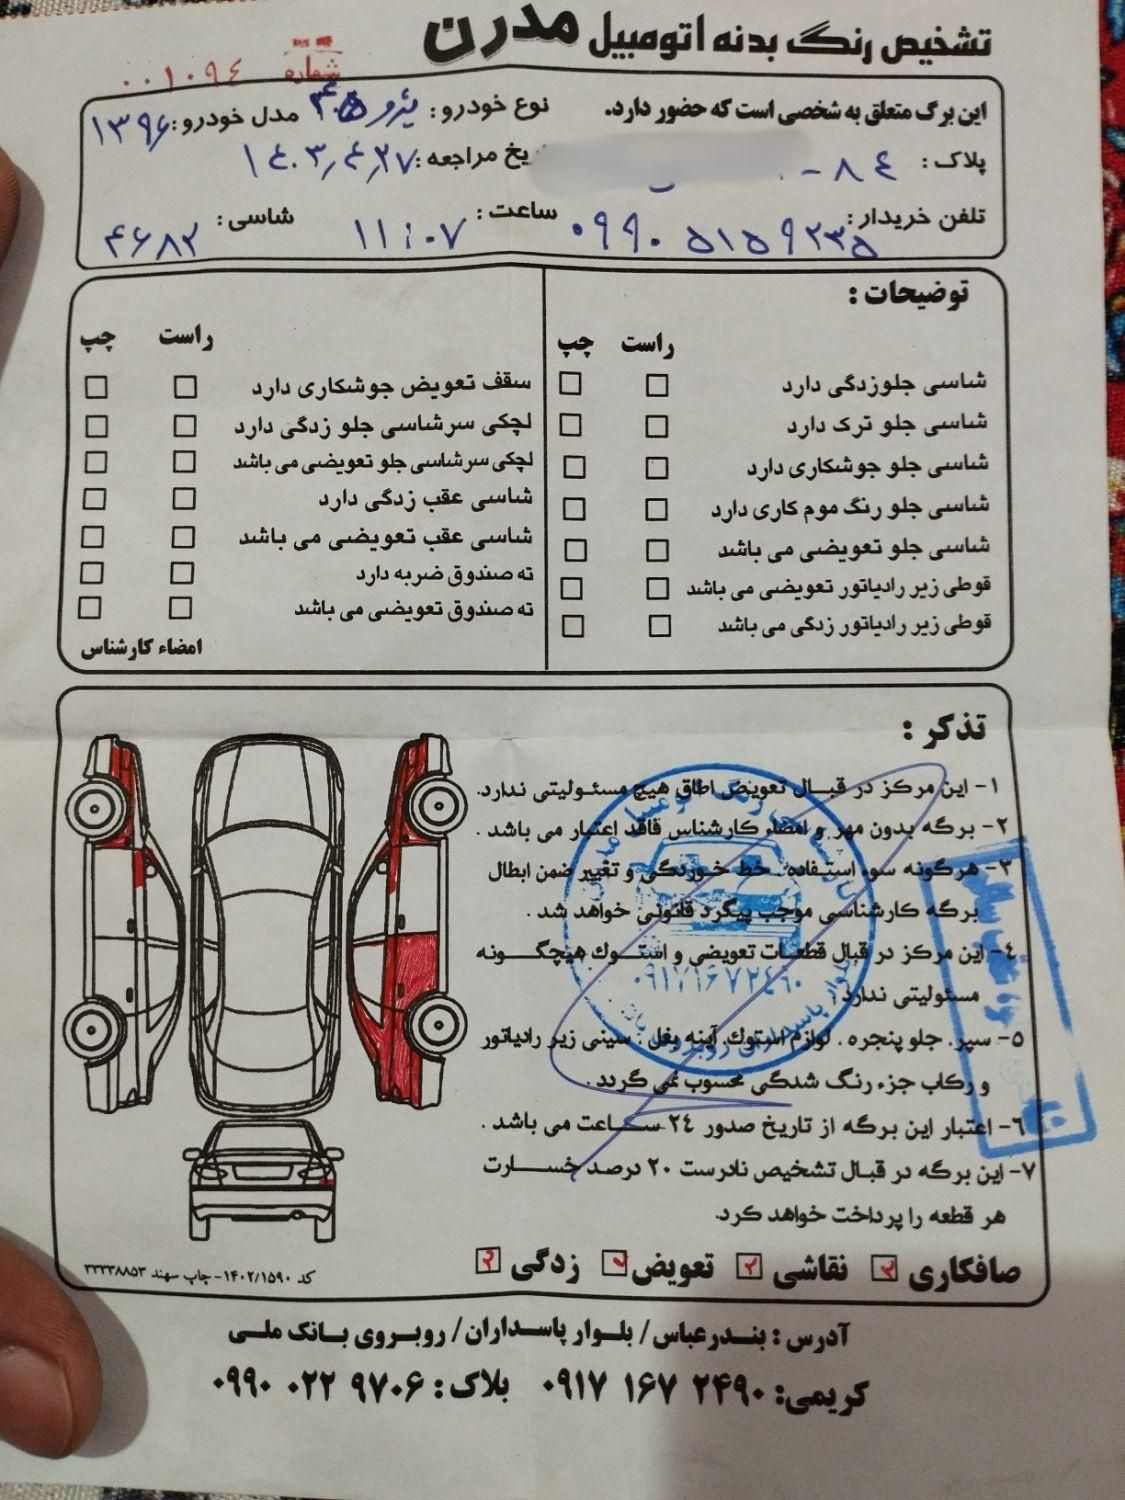 تشخیص رنگ بدنه اتومبیل مدرن
شماره ۰۰۱۰۹۴
این برگ متعلق به شخصی است که حضور دارد. نوع خودرو: پژو ۴۰۵ مدل خودرو: ۱۳۹۶
پلاک: ۸۴ - یخ مراجعه: ۱۴۰۳٫۴٫۲۷
تلفن خریدار: ۰۹۹۰ ۵۱۵۹۲۳۵ ساعت: ۱۱:۰۷ شاسی: ۴۶۸۲
توضیحات:
راست چپ
شاسی جلوزدگی دارد
شاسی جلو ترک دارد
شاسی جلو جوشکاری دارد
شاسی جلو رنگ موم کاری دارد
شاسی جلو تعویضی می باشد
قوطی زیر رادیاتور تعویضی می باشد
قوطی زیر رادیاتور زدگی می باشد
راست چپ
سقف تعویض جوشکاری دارد
لچکی سرشاسی جلو زدگی دارد
لچکی سرشاسی جلو تعویضی می باشد
شاسی عقب زدگی دارد
شاسی عقب تعویضی می باشد
ته صندوق ضربه دارد
ته صندوق تعویضی می باشد
امضاء کارشناس
تذکر:
۱- این مرکز در قبال تعویض اطاق هیچ مسئولیتی ندارد.
۲- برگه بدون مهر و امضاء کارشناس فاقد اعتبار می باشد.
۳- هرگونه سوء استفاده، خط خوردگی و تغییر ضمن ابطال
برگه کارشناسی موجب پیگرد قانونی خواهد شد.
۴- این مرکز در قبال قطعات تعویضی و استوک هیچگونه
مسئولیتی ندارد.
۵- سپر، جلو پنجره، لوازم استوک، آینه بغل، سینی زیر رادیاتور
و رکاب جزء رنگ شدگی محسوب نمی گردد.
۶- اعتبار این برگه از تاریخ صدور ۲۴ ساعت می باشد.
۷- این برگه در قبال تشخیص نادرست ۲۰ درصد خسارت
هر قطعه را پرداخت خواهد کرد.
صافکاری نقاشی تعویض زدگی
کد ۱۴۰۲/۱۵۹۰- چاپ سهند ۳۳۳۳۸۸۵۳
آدرس: بندرعباس/ بلوار پاسداران/ روبروی بانک ملی
کریمی: ۰۹۱۷ ۱۶۷ ۲۴۹۰ بلاک: ۰۹۹۰ ۰۲۲ ۹۷۰۶